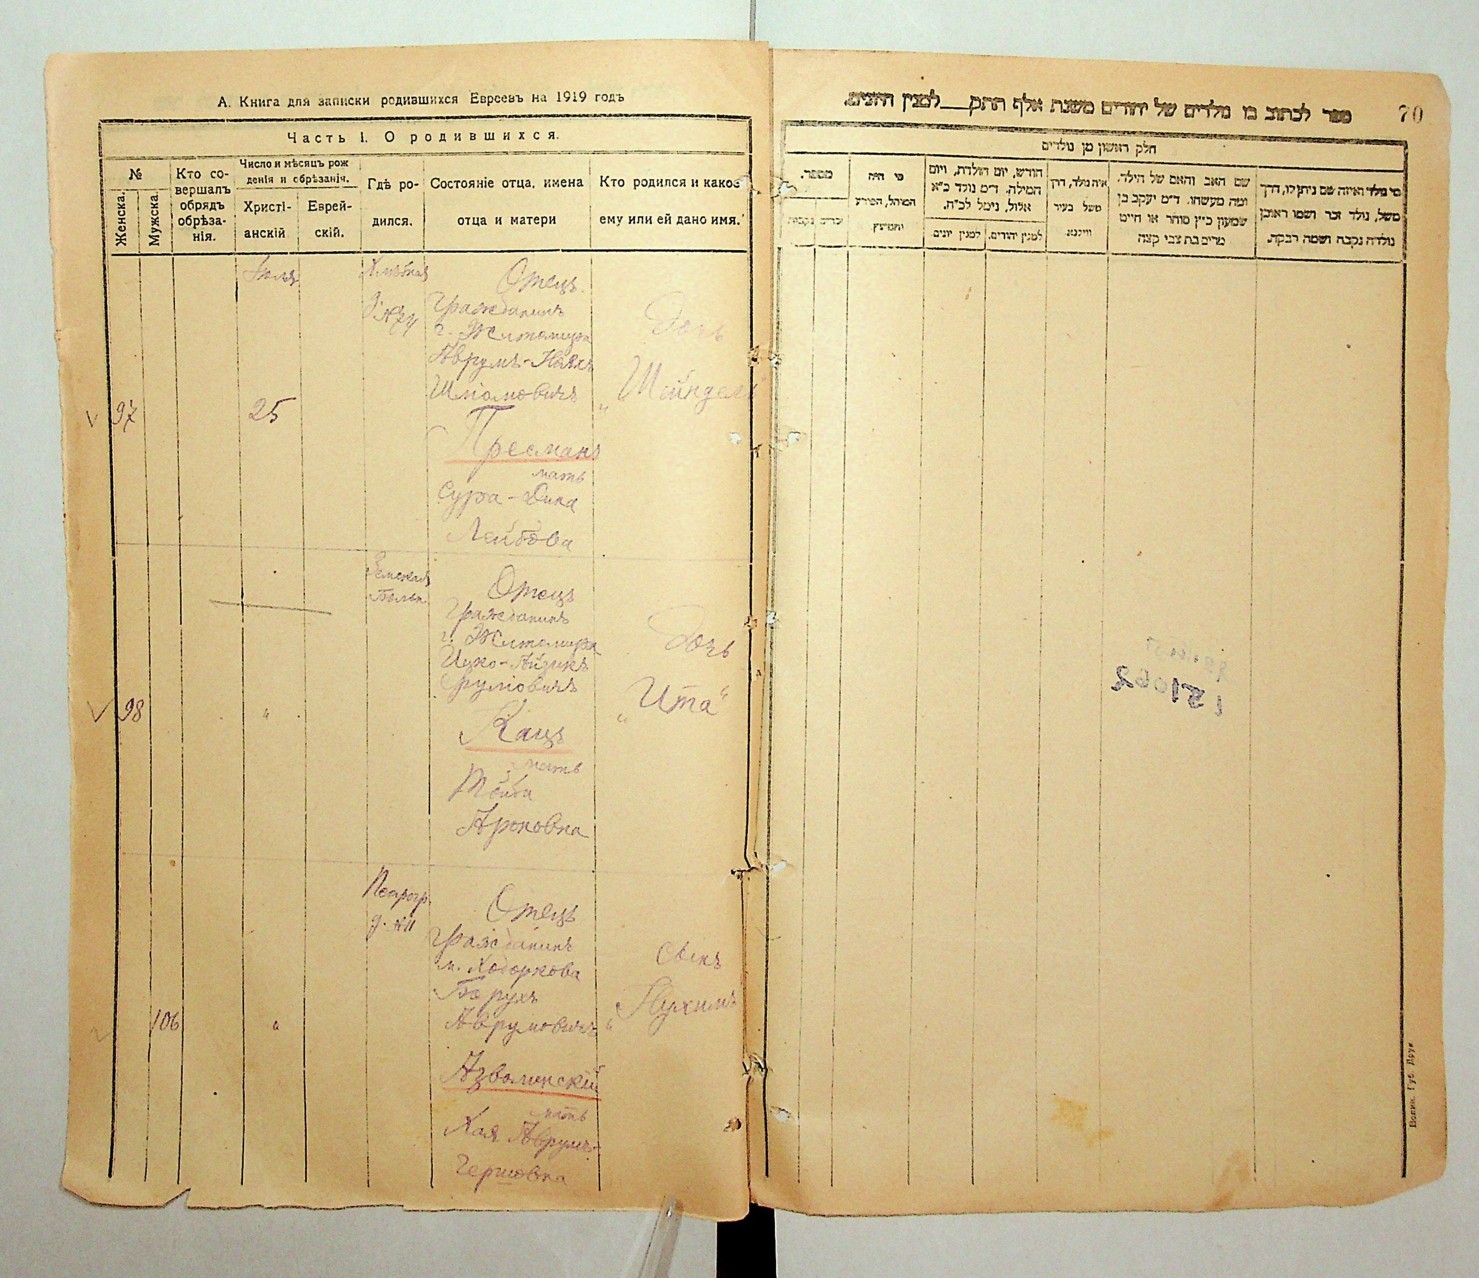 А. Книга для записки родившихся Евреевъ на 1919 годъ
Часть I. О родившихся.
№
Женска.
Мужска.
Кто со-
вершалъ
обрядъ
обрѣза-
нія.
Число и мѣсяцъ рож
денія и обрѣзанія.
Христі-
анскій
Еврей-
скій.
Гдѣ ро-
дился.
Состояніе отца, имена
отца и матери
Кто родился и какое
ему или ей дано имя.
97
Іюля
25
№ 74
Отецъ
Гражданинъ
г. Житомира
Аврумъ-
Шліомовичъ
Пресманъ
мать
Сура-Дина
Лейбова
Дочь
„Шейндель
98
"
Отецъ
Гражданинъ
г. Житомира
Ицко-Айзикъ
Сруліовичъ
Кацъ
мать
Тойба
Ароновна
Дочь
„Ита"
106
"
Петрогр.
д. №11
Отецъ
Гражданинъ
м. Ходоркова
Борухъ
Аврумовичъ
Азволинскій
мать
Хая Аврумъ-
Гершовна
Сынъ
„Нухимъ
70
ספר לכתוב בו נולדים של יהודים משנת אלף התתק למנין היונים.
חלק ראשון מן נולדים
מספר.
זכרים
נקבות
מי היה
המוהל, הפורע
והמוצץ
חודש, יום הולדת, ויום
המילה. ד״מ נולד כ״א
אלול, נימול לכ״ח.
למנין יונים
למנין יהודים.
איה נולד, דרך
משל בעיר
ווילנא
שם האב והאם של הילד.
ומה מעשהו. ד״מ יעקב בן
שמעון כ״ץ סוחר או חייט
מרים בת צבי קצה
מי נולד ואיזה שם ניתן לו, דרך
משל, נולד זכר ושמו ראובן
נולדה נקבה ושמה רבקה.
51062
Волин. Губ. Друк.